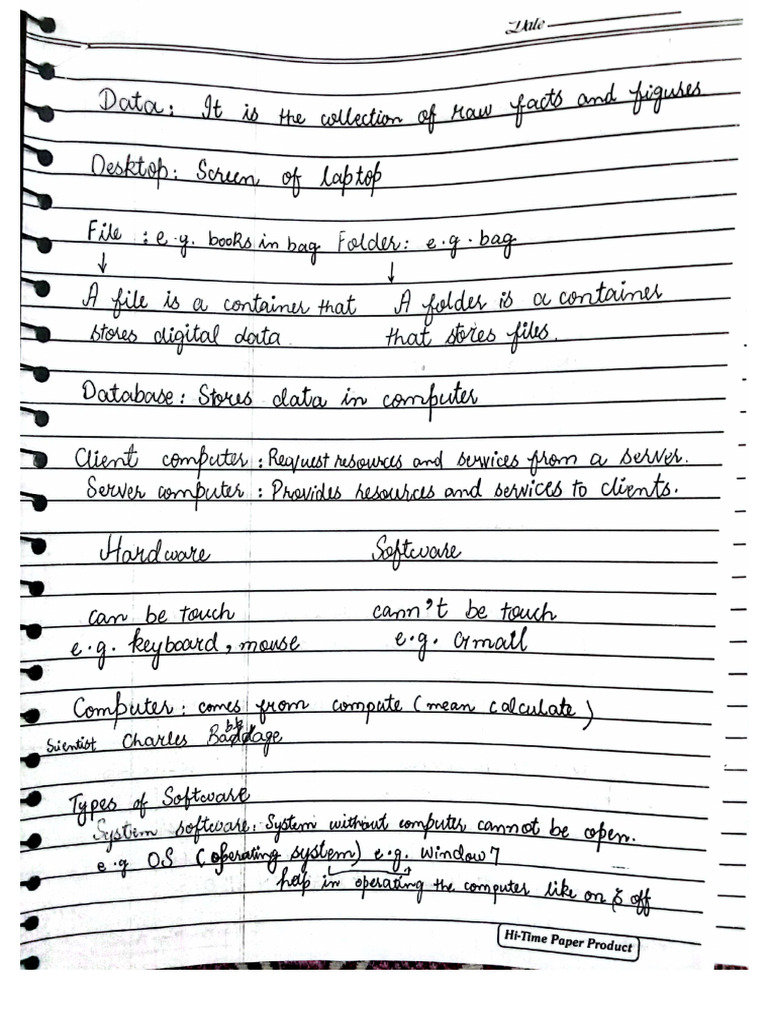 Date
Data: It is the collection of raw facts and figures
Desktop: Screen of laptop
File : e.g. books in bag Folder: e.g. bag
↓ ↓
A file is a container that A folder is a container
stores digital data that stores files.
Database: Stores data in computer
Client computer: Request resources and services from a server.
Server computer: Provides resources and services to clients.
Hardware Software
can be touch cann't be touch
e.g. keyboard, mouse e.g. Gmail
Computer: comes from compute (mean calculate)
Scientist Charles Babbage
Types of Software
System software: System without computer cannot be open.
e.g OS (operating system) e.g. window 7
help in operating the computer like on & off
Hi-Time Paper Product